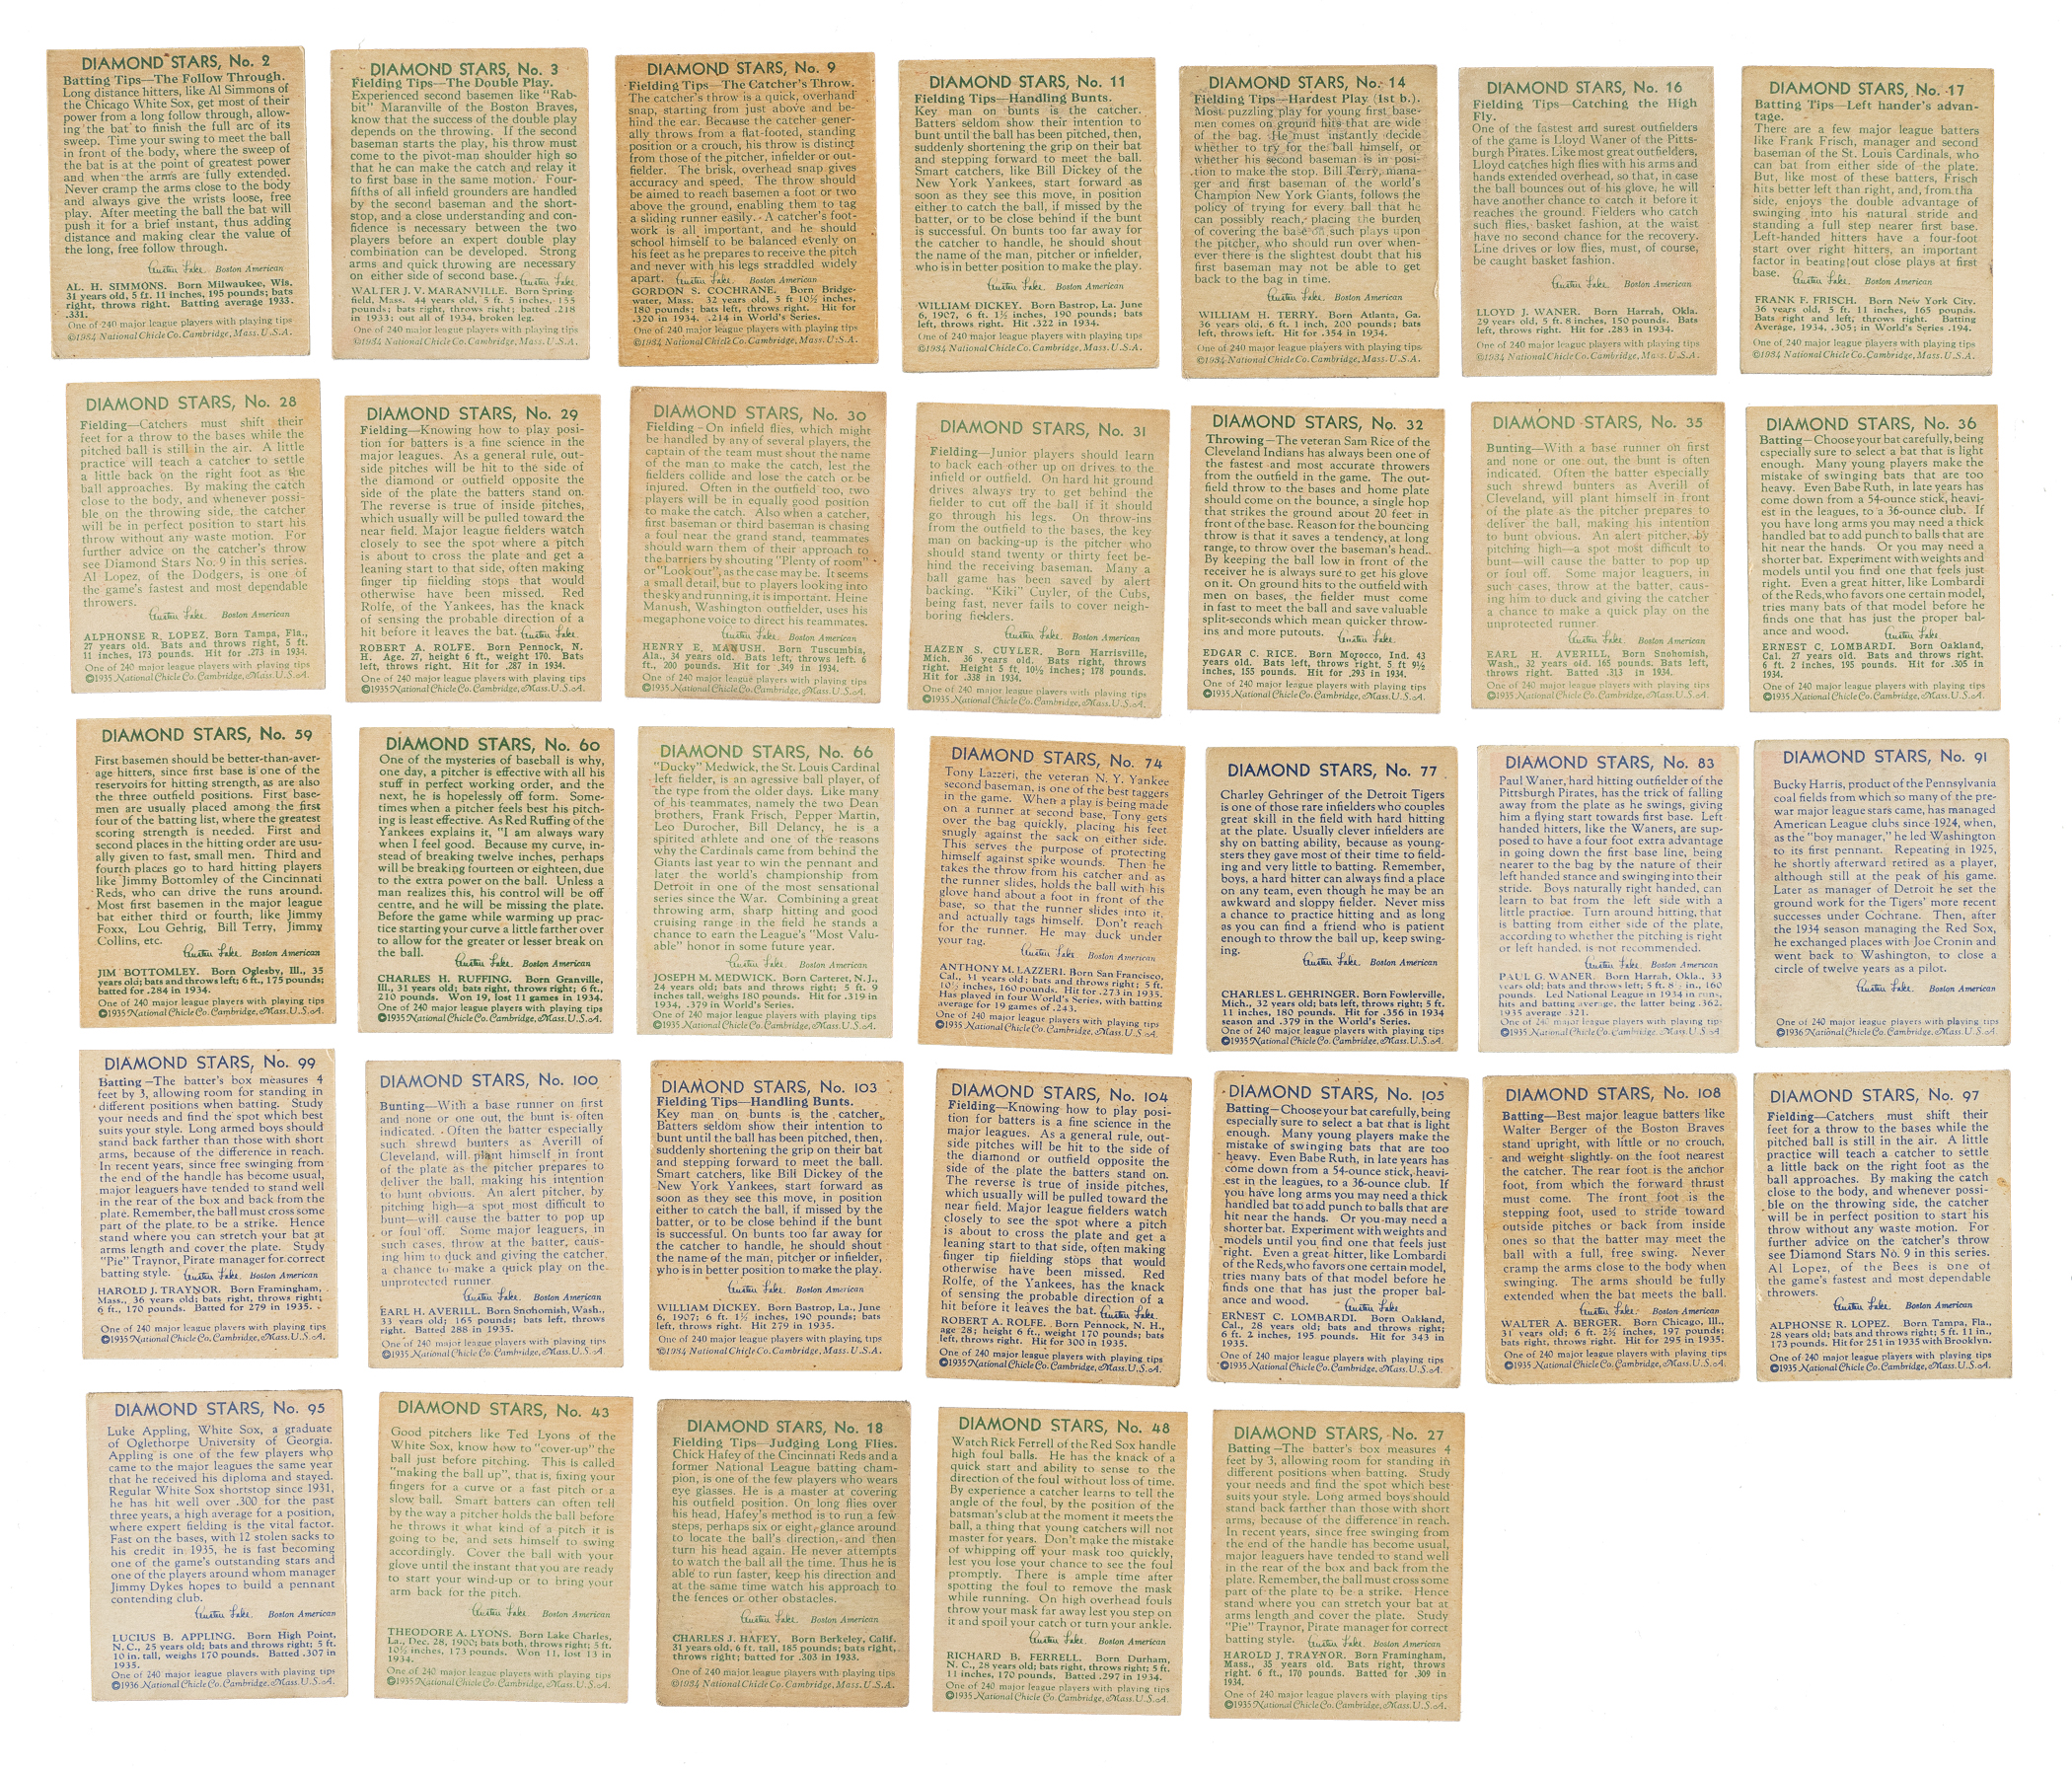 DIAMOND STARS, No. 2
Batting Tips—The Follow Through.
Long distance hitters, like Al Simmons of
the Chicago White Sox, get most of their
power from a long follow through, allow-
ing the bat to finish the full arc of its
sweep. Time your swing to meet the ball
in front of the body, where the sweep of
the bat is at the point of greatest power
and when the arms are fully extended.
Never cramp the arms close to the body
and always give the wrists loose, free
play. After meeting the ball the bat will
push it for a brief instant, thus adding
distance and making clear the value of
the long, free follow through.
Austen Lake. Boston American
AL. H. SIMMONS. Born Milwaukee, Wis.
31 years old, 5 ft. 11 inches, 195 pounds; bats
right, throws right. Batting average 1933.
.331.
One of 240 major league players with playing tips
©1934 National Chicle Co. Cambridge, Mass. U.S.A.
DIAMOND STARS, No. 3
Fielding Tips—The Double Play.
Experienced second basemen like "Rab-
bit" Maranville of the Boston Braves,
know that the success of the double play
depends on the throwing. If the second
baseman starts the play, his throw must
come to the pivot-man shoulder high so
that he can make the catch and relay it
to first base in the same motion. Four-
fifths of all infield grounders are handled
by the second baseman and the short-
stop, and a close understanding and con-
fidence is necessary between the two
players before an expert double play
combination can be developed. Strong
arms and quick throwing are necessary
on either side of second base. Austen Lake.
WALTER J. V. MARANVILLE. Born Spring-
field, Mass. 44 years old, 5 ft. 5 inches, 155
pounds; bats right, throws right; batted .218
in 1933; out all of 1934, broken leg.
One of 240 major league players with playing tips
©1934 National Chicle Co. Cambridge, Mass. U.S.A.
DIAMOND STARS, No. 9
Fielding Tips—The Catcher's Throw.
The catcher's throw is a quick, overhand
snap, starting from just above and be-
hind the ear. Because the catcher gener-
ally throws from a flat-footed, standing
position or a crouch, his throw is distinct
from those of the pitcher, infielder or out-
fielder. The brisk, overhead snap gives
accuracy and speed. The throw should
be aimed to reach basemen a foot or two
above the ground, enabling them to tag
a sliding runner easily. A catcher's foot-
work is all important, and he should
school himself to be balanced evenly on
his feet as he prepares to receive the pitch
and never with his legs straddled widely
apart. Austen Lake. Boston American
GORDON S. COCHRANE. Born Bridge-
water, Mass. 32 years old, 5 ft 10½ inches,
180 pounds; bats left, throws right. Hit for
.320 in 1934. .214 in World's Series.
One of 240 major league players with playing tips
©1934 National Chicle Co. Cambridge, Mass. U.S.A.
DIAMOND STARS, No. 11
Fielding Tips—Handling Bunts.
Key man on bunts is the catcher.
Batters seldom show their intention to
bunt until the ball has been pitched, then,
suddenly shortening the grip on their bat
and stepping forward to meet the ball.
Smart catchers, like Bill Dickey of the
New York Yankees, start forward as
soon as they see this move, in position
either to catch the ball, if missed by the
batter, or to be close behind if the bunt
is successful. On bunts too far away for
the catcher to handle, he should shout
the name of the man, pitcher or infielder,
who is in better position to make the play.
Austen Lake. Boston American
WILLIAM DICKEY. Born Bastrop, La. June
6, 1907, 6 ft. 1½ inches, 190 pounds; bats
left, throws right. Hit .322 in 1934.
One of 240 major league players with playing tips
©1934 National Chicle Co. Cambridge, Mass. U.S.A.
DIAMOND STARS, No. 14
Fielding Tips—Hardest Play (1st b.).
Most puzzling play for young first base-
men comes on ground hits that are wide
of the bag. He must instantly decide
whether to try for the ball himself, or
whether his second baseman is in posi-
tion to make the stop. Bill Terry, mana-
ger and first baseman of the world's
Champion New York Giants, follows the
policy of trying for every ball that he
can possibly reach, placing the burden
of covering the base on such plays upon
the pitcher, who should run over when-
ever there is the slightest doubt that his
first baseman may not be able to get
back to the bag in time.
Austen Lake. Boston American
WILLIAM H. TERRY. Born Atlanta, Ga.
36 years old, 6 ft. 1 inch, 200 pounds; bats
left, throws left. Hit for .354 in 1934.
One of 240 major league players with playing tips
©1934 National Chicle Co. Cambridge, Mass. U.S.A.
DIAMOND STARS, No. 16
Fielding Tips—Catching the High
Fly.
One of the fastest and surest outfielders
of the game is Lloyd Waner of the Pitts-
burgh Pirates. Like most great outfielders,
Lloyd catches high flies with his arms and
hands extended overhead, so that, in case
the ball bounces out of his glove, he will
have another chance to catch it before it
reaches the ground. Fielders who catch
such flies, basket fashion, at the waist
have no second chance for the recovery.
Line drives or low flies, must, of course,
be caught basket fashion.
Austen Lake. Boston American
LLOYD J. WANER. Born Harrah, Okla.
29 years old, 5 ft. 8 inches, 150 pounds. Bats
left, throws right. Hit for .283 in 1934.
One of 240 major league players with playing tips
©1934 National Chicle Co. Cambridge, Mass. U.S.A.
DIAMOND STARS, No. 17
Batting Tips—Left hander's advan-
tage.
There are a few major league batters
like Frank Frisch, manager and second
baseman of the St. Louis Cardinals, who
can bat from either side of the plate.
But, like most of these batters, Frisch
hits better left than right, and, from the
side, enjoys the double advantage of
swinging into his natural stride and
standing a full step nearer first base.
Left-handed hitters have a four-foot
start over right hitters, an important
factor in beating out close plays at first
base. Austen Lake. Boston American
FRANK F. FRISCH. Born New York City.
36 years old, 5 ft. 11 inches, 165 pounds.
Bats right and left, throws right. Batting
Average, 1934, .305; in World's Series .194.
One of 240 major league players with playing tips
©1934 National Chicle Co. Cambridge, Mass. U.S.A.
DIAMOND STARS, No. 28
Fielding—Catchers must shift their
feet for a throw to the bases while the
pitched ball is still in the air. A little
practice will teach a catcher to settle
a little back on the right foot as the
ball approaches. By making the catch
close to the body, and whenever possi-
ble on the throwing side, the catcher
will be in perfect position to start his
throw without any waste motion. For
further advice on the catcher's throw
see Diamond Stars No. 9 in this series.
Al Lopez, of the Dodgers, is one of
the game's fastest and most dependable
throwers.
Austen Lake. Boston American
ALPHONSE R. LOPEZ. Born Tampa, Fla.,
27 years old. Bats and throws right, 5 ft.
11 inches, 173 pounds. Hit for .273 in 1934.
One of 240 major league players with playing tips
©1935 National Chicle Co. Cambridge, Mass. U.S.A.
DIAMOND STARS, No. 29
Fielding—Knowing how to play posi-
tion for batters is a fine science in the
major leagues. As a general rule, out-
side pitches will be hit to the side of
the diamond or outfield opposite the
side of the plate the batters stand on.
The reverse is true of inside pitches,
which usually will be pulled toward the
near field. Major league fielders watch
closely to see the spot where a pitch
is about to cross the plate and get a
leaning start to that side, often making
finger tip fiielding stops that would
otherwise have been missed. Red
Rolfe, of the Yankees, has the knack
of sensing the probable direction of a
hit before it leaves the bat. Austen Lake.
ROBERT A. ROLFE. Born Pennock, N.
H. Age. 27, height 6 ft., weight 170. Bats
left, throws right. Hit for .287 in 1934.
One of 240 major league players with playing tips
©1935 National Chicle Co. Cambridge, Mass. U.S.A.
DIAMOND STARS, No. 30
Fielding—On infield flies, which might
be handled by any of several players, the
captain of the team must shout the name
of the man to make the catch, lest the
fielders collide and lose the catch or be
injured. Often in the outfield too, two
players will be in equally good position
to make the catch. Also when a catcher,
first baseman or third baseman is chasing
a foul near the grand stand, teammates
should warn them of their approach to
the barriers by shouting "Plenty of room"
or "Look out", as the case may be. It seems
a small detail, but to players looking into
the sky and running, it is important. Heine
Manush, Washington outfielder, uses his
megaphone voice to direct his teammates.
Austen Lake. Boston American
HENRY E. MANUSH. Born Tuscumbia,
Ala., 34 years old. Bats left, throws left. 6
ft., 200 pounds. Hit for .349 in 1934.
One of 240 major league players with playing tips
©1935 National Chicle Co. Cambridge, Mass. U.S.A.
DIAMOND STARS, No. 31
Fielding—Junior players should learn
to back each other up on drives to the
infield or outfield. On hard hit ground
drives always try to get behind the
fielder to cut off the ball if it should
go through his legs. On throw-ins
from the outfield to the bases, the key
man on backing-up is the pitcher who
should stand twenty or thirty feet be-
hind the receiving baseman. Many a
ball game has been saved by alert
backing. "Kiki" Cuyler, of the Cubs,
being fast, never fails to cover neigh-
boring fielders.
Austen Lake. Boston American
HAZEN S. CUYLER. Born Harrisville,
Mich. 36 years old. Bats right, throws
right. Height 5 ft. 10½ inches; 178 pounds.
Hit for .338 in 1934.
One of 240 major league players with playing tips
©1935 National Chicle Co. Cambridge, Mass. U.S.A.
DIAMOND STARS, No. 32
Throwing—The veteran Sam Rice of the
Cleveland Indians has always been one of
the fastest and most accurate throwers
from the outfield in the game. The out-
field throw to the bases and home plate
should come on the bounce, a single hop
that strikes the ground about 20 feet in
front of the base. Reason for the bouncing
throw is that it saves a tendency, at long
range, to throw over the baseman's head.
By keeping the ball low in front of the
receiver he is always sure to get his glove
on it. On ground hits to the outfield with
men on bases, the fielder must come
in fast to meet the ball and save valuable
split-seconds which mean quicker throw-
ins and more putouts. Austen Lake.
EDGAR C. RICE. Born Morocco, Ind. 43
years old. Bats left, throws right. 5 ft 9½
inches, 155 pounds. Hit for .293 in 1934.
One of 240 major league players with playing tips
©1935 National Chicle Co. Cambridge, Mass. U.S.A.
DIAMOND STARS, No. 35
Bunting—With a base runner on first
and none or one out, the bunt is often
indicated. Often the batter especially
such shrewd bunters as Averill of
Cleveland, will plant himself in front
of the plate as the pitcher prepares to
deliver the ball, making his intention
to bunt obvious. An alert pitcher, by
pitching high—a spot most difficult to
bunt—will cause the batter to pop up
or foul off. Some major leaguers, in
such cases, throw at the batter, caus-
ing him to duck and giving the catcher
a chance to make a quick play on the
unprotected runner.
Austen Lake. Boston American
EARL H. AVERILL, Born Snohomish,
Wash., 32 years old. 165 pounds. Bats left,
throws right. Batted .313 in 1934.
One of 240 major league players with playing tips
©1935 National Chicle Co. Cambridge, Mass. U.S.A.
DIAMOND STARS, No. 36
Batting—Choose your bat carefully, being
especially sure to select a bat that is light
enough. Many young players make the
mistake of swinging bats that are too
heavy. Even Babe Ruth, in late years has
come down from a 54-ounce stick, heavi-
est in the leagues, to a 36-ounce club. If
you have long arms you may need a thick
handled bat to add punch to balls that are
hit near the hands. Or you may need a
shorter bat. Experiment with weights and
models until you find one that feels just
right. Even a great hitter, like Lombardi
of the Reds, who favors one certain model,
tries many bats of that model before he
finds one that has just the proper bal-
ance and wood. Austen Lake
ERNEST C. LOMBARDI. Born Oakland,
Cal. 27 years old. Bats and throws right.
6 ft. 2 inches, 195 pounds. Hit for .305 in
1934.
One of 240 major league players with playing tips
©1935 National Chicle Co. Cambridge, Mass. U.S.A.
DIAMOND STARS, No. 59
First basemen should be better-than-aver-
age hitters, since first base is one of the
reservoirs for hitting strength, as are also
the three outfield positions. First base-
men are usually placed among the first
four of the batting list, where the greatest
scoring strength is needed. First and
second places in the hitting order are usu-
ally given to fast, small men. Third and
fourth places go to hard hitting players
like Jimmy Bottomley of the Cincinnati
Reds, who can drive the runs around.
Most first basemen in the major league
bat either third or fourth, like Jimmy
Foxx, Lou Gehrig, Bill Terry, Jimmy
Collins, etc.
Austen Lake. Boston American
JIM BOTTOMLEY. Born Oglesby, Ill., 35
years old; bats and throws left; 6 ft., 175 pounds;
batted for .284 in 1934.
One of 240 major league players with playing tips
©1935 National Chicle Co. Cambridge, Mass. U.S.A.
DIAMOND STARS, No. 60
One of the mysteries of baseball is why,
one day, a pitcher is effective with all his
stuff in perfect working order, and the
next, he is hopelessly off form. Some-
times when a pitcher feels best his pitch-
ing is least effective. As Red Ruffing of the
Yankees explains it, "I am always wary
when I feel good. Because my curve, in-
stead of breaking twelve inches, perhaps
will be breaking fourteen or eighteen, due
to the extra power on the ball. Unless a
man realizes this, his control will be off
centre, and he will be missing the plate.
Before the game while warming up prac-
tice starting your curve a little farther over
to allow for the greater or lesser break on
the ball. Austen Lake. Boston American
CHARLES H. RUFFING. Born Granville,
Ill., 31 years old; bats right, throws right; 6 ft.,
210 pounds. Won 19, lost 11 games in 1934.
One of 240 major league players with playing tips
©1935 National Chicle Co. Cambridge, Mass. U.S.A.
DIAMOND STARS, No. 66
"Ducky" Medwick, the St. Louis Cardinal
left fielder, is an agressive ball player, of
the type from the older days. Like many
of his teammates, namely the two Dean
brothers, Frank Frisch, Pepper Martin,
Leo Durocher, Bill Delancy, he is a
spirited athlete and one of the reasons
why the Cardinals came from behind the
Giants last year to win the pennant and
later the world's championship from
Detroit in one of the most sensational
series since the War. Combining a great
throwing arm, sharp hitting and good
cruising range in the field he stands a
chance to earn the League's "Most Valu-
able" honor in some future year.
Austen Lake. Boston American
JOSEPH M. MEDWICK. Born Carteret, N.J.,
24 years old; bats and throws right; 5 ft. 9
inches tall, weighs 180 pounds. Hit for .319 in
1934, .379 in World's Series.
One of 240 major league players with playing tips
©1935 National Chicle Co. Cambridge, Mass. U.S.A.
DIAMOND STARS, No. 74
Tony Lazzeri, the veteran N. Y. Yankee
second baseman, is one of the best taggers
in the game. When a play is being made
on a runner at second base, Tony gets
over the bag quickly, placing his feet
snugly against the sack on either side.
This serves the purpose of protecting
himself against spike wounds. Then he
takes the throw from his catcher and as
the runner slides, holds the ball with his
glove hand about a foot in front of the
base, so that the runner slides into it,
and actually tags himself. Don't reach
for the runner. He may duck under
your tag. Austen Lake. Boston American
ANTHONY M. LAZZERI. Born San Francisco,
Cal., 31 years old; bats and throws right; 5 ft.
10½ inches, 160 pounds. Hit for .273 in 1935.
Has played in four World's Series, with batting
average for 19 games of .243.
One of 240 major league players with playing tips
©1935 National Chicle Co. Cambridge, Mass. U.S.A.
DIAMOND STARS, No. 77
Charley Gehringer of the Detroit Tigers
is one of those rare infielders who couples
great skill in the field with hard hitting
at the plate. Usually clever infielders are
shy on batting ability, because as young-
sters they gave most of their time to field-
ing and very little to batting. Remember,
boys, a hard hitter can always find a place
on any team, even though he may be an
awkward and sloppy fielder. Never miss
a chance to practice hitting and as long
as you can find a friend who is patient
enough to throw the ball up, keep swing-
ing. Austen Lake. Boston American
CHARLES L. GEHRINGER. Born Fowlerville,
Mich., 32 years old; bats left, throws right; 5 ft.
11 inches, 180 pounds. Hit for .356 in 1934
season and .379 in the World's Series.
One of 240 major league players with playing tips
©1935 National Chicle Co. Cambridge, Mass. U.S.A.
DIAMOND STARS, No. 83
Paul Waner, hard hitting outfielder of the
Pittsburgh Pirates, has the trick of falling
away from the plate as he swings, giving
him a flying start towards first base. Left
handed hitters, like the Waners, are sup-
posed to have a four foot extra advantage
in going down the first base line, being
nearer to the bag by the nature of their
left handed stance and swinging into their
stride. Boys naturally right handed, can
learn to bat from the left side with a
little practice. Turn around hitting, that
is batting from either side of the plate,
according to whether the pitching is right
or left handed, is not recommended.
Austen Lake. Boston American
PAUL G. WANER. Born Harrah, Okla., 33
years old; bats and throws left; 5 ft. 8 in., 160
pounds. Led National League in 1934 in runs,
hits and batting average, the latter being .362.
1935 average .321.
One of 240 major league players with playing tips
©1935 National Chicle Co. Cambridge, Mass. U.S.A.
DIAMOND STARS, No. 91
Bucky Harris, product of the Pennsylvania
coal fields from which so many of the pre-
war major league stars came, has managed
American League clubs since 1924, when,
as the "boy manager," he led Washington
to its first pennant. Repeating in 1925,
he shortly afterward retired as a player,
although still at the peak of his game.
Later as manager of Detroit he set the
ground work for the Tigers' more recent
successes under Cochrane. Then, after
the 1934 season managing the Red Sox,
he exchanged places with Joe Cronin and
went back to Washington, to close a
circle of twelve years as a pilot.
Austen Lake. Boston American
One of 240 major league players with playing tips
©1936 National Chicle Co. Cambridge, Mass. U.S.A.
DIAMOND STARS, No. 99
Batting—The batter's box measures 4
feet by 3, allowing room for standing in
different positions when batting. Study
your needs and find the spot which best
suits your style. Long armed boys should
stand back farther than those with short
arms, because of the difference in reach.
In recent years, since free swinging from
the end of the handle has become usual,
major leaguers have tended to stand well
in the rear of the box and back from the
plate. Remember, the ball must cross some
part of the plate to be a strike. Hence
stand where you can stretch your bat at
arms length and cover the plate. Study
"Pie" Traynor, Pirate manager for correct
batting style. Austen Lake. Boston American
HAROLD J. TRAYNOR. Born Framingham,
Mass., 36 years old; bats right, throws right;
6 ft., 170 pounds. Batted for 279 in 1935.
One of 240 major league players with playing tips
©1935 National Chicle Co. Cambridge, Mass. U.S.A.
DIAMOND STARS, No. 100
Bunting—With a base runner on first
and none or one out, the bunt is often
indicated. Often the batter especially
such shrewd bunters as Averill of
Cleveland, will plant himself in front
of the plate as the pitcher prepares to
deliver the ball, making his intention
to bunt obvious. An alert pitcher, by
pitching high—a spot most difficult to
bunt—will cause the batter to pop up
or foul off. Some major leaguers, in
such cases, throw at the batter, caus-
ing him to duck and giving the catcher
a chance to make a quick play on the
unprotected runner.
Austen Lake. Boston American
EARL H. AVERILL. Born Snohomish, Wash.,
33 years old; 165 pounds; bats left, throws
right. Batted 288 in 1935.
One of 240 major league players with playing tips
©1935 National Chicle Co. Cambridge, Mass. U.S.A.
DIAMOND STARS, No. 103
Fielding Tips—Handling Bunts.
Key man on bunts is the catcher.
Batters seldom show their intention to
bunt until the ball has been pitched, then,
suddenly shortening the grip on their bat
and stepping forward to meet the ball.
Smart catchers, like Bill Dickey of the
New York Yankees, start forward as
soon as they see this move, in position
either to catch the ball, if missed by the
batter, or to be close behind if the bunt
is successful. On bunts too far away for
the catcher to handle, he should shout
the name of the man, pitcher or infielder,
who is in better position to make the play.
Austen Lake. Boston American
WILLIAM DICKEY. Born Bastrop, La., June
6, 1907; 6 ft. 1½ inches, 190 pounds; bats
left, throws right. Hit 279 in 1935.
One of 240 major league players with playing tips
©1934 National Chicle Co. Cambridge, Mass. U.S.A.
DIAMOND STARS, No. 104
Fielding—Knowing how to play posi-
tion for batters is a fine science in the
major leagues. As a general rule, out-
side pitches will be hit to the side of
the diamond or outfield opposite the
side of the plate the batters stand on.
The reverse is true of inside pitches,
which usually will be pulled toward the
near field. Major league fielders watch
closely to see the spot where a pitch
is about to cross the plate and get a
leaning start to that side, often making
finger tip fiielding stops that would
otherwise have been missed. Red
Rolfe, of the Yankees, has the knack
of sensing the probable direction of a
hit before it leaves the bat. Austen Lake.
ROBERT A. ROLFE. Born Pennock, N. H.,
age 28; height 6 ft., weight 170 pounds; bats
left, throws right. Hit for 300 in 1935.
One of 240 major league players with playing tips
©1935 National Chicle Co. Cambridge, Mass. U.S.A.
DIAMOND STARS, No. 105
Batting—Choose your bat carefully, being
especially sure to select a bat that is light
enough. Many young players make the
mistake of swinging bats that are too
heavy. Even Babe Ruth, in late years has
come down from a 54-ounce stick, heavi-
est in the leagues, to a 36-ounce club. If
you have long arms you may need a thick
handled bat to add punch to balls that are
hit near the hands. Or you may need a
shorter bat. Experiment with weights and
models until you find one that feels just
right. Even a great hitter, like Lombardi
of the Reds, who favors one certain model,
tries many bats of that model before he
finds one that has just the proper bal-
ance and wood. Austen Lake
ERNEST C. LOMBARDI. Born Oakland,
Cal., 28 years old; bats and throws right;
6 ft. 2 inches, 195 pounds. Hit for 343 in
1935.
One of 240 major league players with playing tips
©1935 National Chicle Co. Cambridge, Mass. U.S.A.
DIAMOND STARS, No. 108
Batting—Best major league batters like
Walter Berger of the Boston Braves
stand upright, with little or no crouch,
and weight slightly on the foot nearest
the catcher. The rear foot is the anchor
foot, from which the forward thrust
must come. The front foot is the
stepping foot, used to stride toward
outside pitches or back from inside
ones so that the batter may meet the
ball with a full, free swing. Never
cramp the arms close to the body when
swinging. The arms should be fully
extended when the bat meets the ball.
Austen Lake. Boston American
WALTER A. BERGER. Born Chicago, Ill.,
31 years old; 6 ft. 2½ inches, 197 pounds;
bats right, throws right. Hit for 295 in 1935.
One of 240 major league players with playing tips
©1935 National Chicle Co. Cambridge, Mass. U.S.A.
DIAMOND STARS, No. 97
Fielding—Catchers must shift their
feet for a throw to the bases while the
pitched ball is still in the air. A little
practice will teach a catcher to settle
a little back on the right foot as the
ball approaches. By making the catch
close to the body, and whenever possi-
ble on the throwing side, the catcher
will be in perfect position to start his
throw without any waste motion. For
further advice on the catcher's throw
see Diamond Stars No. 9 in this series.
Al Lopez, of the Bees is one of
the game's fastest and most dependable
throwers.
Austen Lake. Boston American
ALPHONSE R. LOPEZ. Born Tampa, Fla.,
28 years old; bats and throws right; 5 ft. 11 in.,
173 pounds. Hit for 251 in 1935 with Brooklyn.
One of 240 major league players with playing tips
©1935 National Chicle Co. Cambridge, Mass. U.S.A.
DIAMOND STARS, No. 95
Luke Appling, White Sox, a graduate
of Oglethorpe University of Georgia.
Appling is one of the few players who
came to the major leagues the same year
that he received his diploma and stayed.
Regular White Sox shortstop since 1931,
he has hit well over .300 for the past
three years, a high average for a position,
where expert fielding is the vital factor.
Fast on the bases, with 12 stolen sacks to
his credit in 1935, he is fast becoming
one of the game's outstanding stars and
one of the players around whom manager
Jimmy Dykes hopes to build a pennant
contending club.
Austen Lake. Boston American
LUCIUS B. APPLING. Born High Point,
N. C., 25 years old; bats and throws right; 5 ft.
10 in. tall, weighs 170 pounds. Batted .307 in
1935.
One of 240 major league players with playing tips
©1936 National Chicle Co. Cambridge, Mass. U.S.A.
DIAMOND STARS, No. 43
Good pitchers like Ted Lyons of the
White Sox, know how to "cover-up" the
ball just before pitching. This is called
"making the ball up", that is, fixing your
fingers for a curve or a fast pitch or a
slow ball. Smart batters can often tell
by the way a pitcher holds the ball before
he throws it what kind of a pitch it is
going to be, and sets himself to swing
accordingly. Cover the ball with your
glove until the instant that you are ready
to start your wind-up or to bring your
arm back for the pitch.
Austen Lake. Boston American
THEODORE A. LYONS. Born Lake Charles,
La., Dec. 28, 1900; bats both, throws right; 5 ft.
10½ inches, 173 pounds. Won 11, lost 13 in
1934.
One of 240 major league players with playing tips
©1935 National Chicle Co. Cambridge, Mass. U.S.A.
DIAMOND STARS, No. 18
Fielding Tips—Judging Long Flies.
Chick Hafey of the Cincinnati Reds and a
former National League batting cham-
pion, is one of the few players who wears
eye glasses. He is a master at covering
his outfield position. On long flies over
his head, Hafey's method is to run a few
steps, perhaps six or eight, glance around
to locate the ball's direction, and then
turn his head again. He never attempts
to watch the ball all the time. Thus he is
able to run faster, keep his direction and
at the same time watch his approach to
the fences or other obstacles.
Austen Lake. Boston American
CHARLES J. HAFEY. Born Berkeley, Calif.
31 years old, 6 ft. tall, 185 pounds; bats right,
throws right; batted for .303 in 1933.
One of 240 major league players with playing tips
©1934 National Chicle Co. Cambridge, Mass. U.S.A.
DIAMOND STARS, No. 48
Watch Rick Ferrell of the Red Sox handle
high foul balls. He has the knack of a
quick start and ability to sense the
direction of the foul without loss of time.
By experience a catcher learns to tell the
angle of the foul, by the position of the
batsman's club at the moment it meets the
ball, a thing that young catchers will not
master for years. Don't make the mistake
of whipping off your mask too quickly,
lest you lose your chance to see the foul
promptly. There is ample time after
spotting the foul to remove the mask
while running. On high overhead fouls
throw your mask far away lest you step on
it and spoil your catch or turn your ankle.
Austen Lake. Boston American
RICHARD B. FERRELL. Born Durham,
N. C., 28 years old; bats right, throws right; 5 ft.
11 inches, 170 pounds. Batted .297 in 1934.
One of 240 major league players with playing tips
©1935 National Chicle Co. Cambridge, Mass. U.S.A.
DIAMOND STARS, No. 27
Batting—The batter's box measures 4
feet by 3, allowing room for standing in
different positions when batting. Study
your needs and find the spot which best
suits your style. Long armed boys should
stand back farther than those with short
arms, because of the difference in reach.
In recent years, since free swinging from
the end of the handle has become usual,
major leaguers have tended to stand well
in the rear of the box and back from the
plate. Remember, the ball must cross some
part of the plate to be a strike. Hence
stand where you can stretch your bat at
arms length and cover the plate. Study
"Pie" Traynor, Pirate manager for correct
batting style. Austen Lake. Boston American
HAROLD J. TRAYNOR. Born Framingham,
Mass., 35 years old. Bats right, throws
right. 6 ft., 170 pounds. Batted for .309 in
1934.
One of 240 major league players with playing tips
©1935 National Chicle Co. Cambridge, Mass. U.S.A.